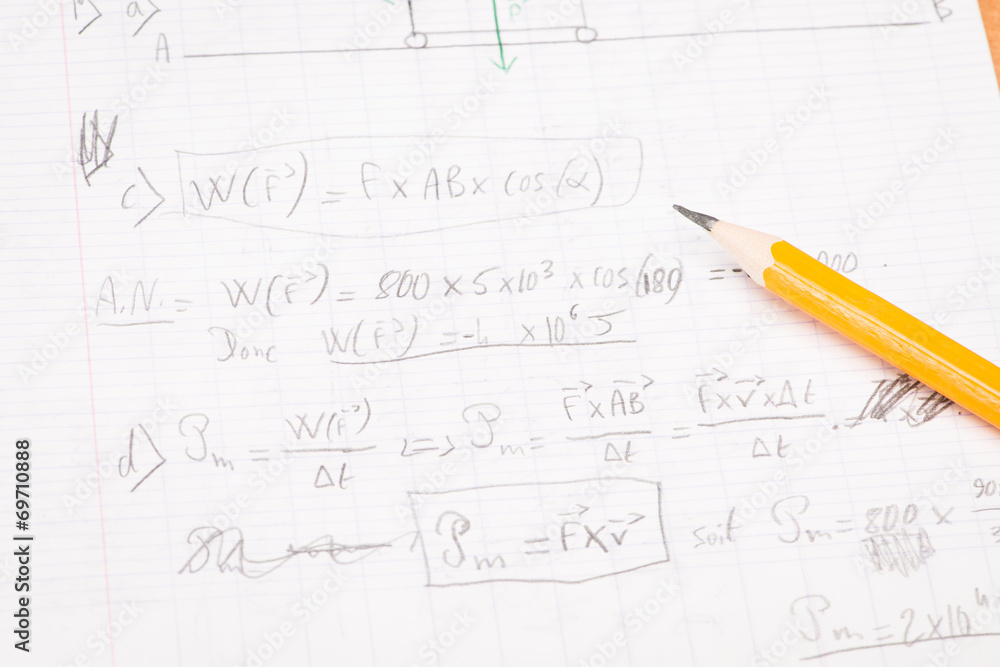 b) a)
A B
P
c) W(F⃗) = F × AB × cos(α)
A.N. = W(F⃗) = 800 × 5 × 10³ × cos(180) = - 000
Donc W(F⃗) = -4 × 10⁶ J
d) 𝒫m = W(F⃗) / Δt <=> 𝒫m = F⃗ × AB⃗ / Δt = F⃗ × v⃗ × Δt / Δt .
𝒫m = F⃗ × v⃗ soit 𝒫m = 800 × 90
𝒫m = 2 × 10⁴
Adobe Stock | #69710888